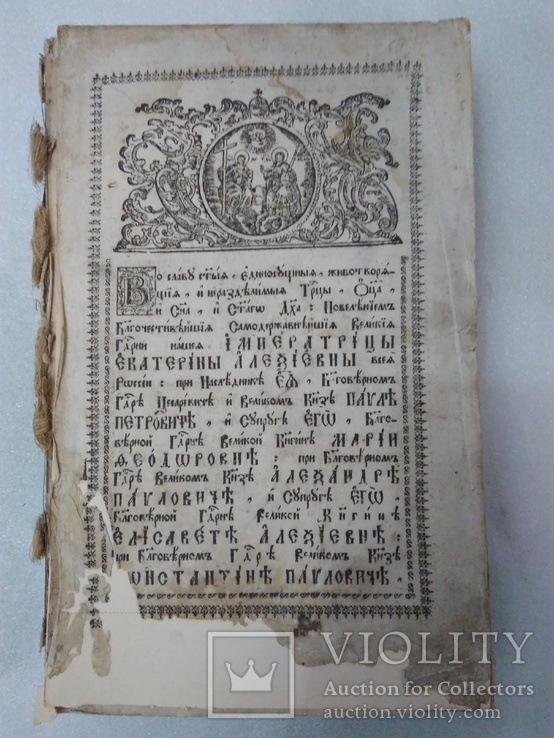 Во славу ст҃ыя, единосущныя, животворѧ-
щїѧ, и нераздѣлимыѧ Трⷪ҇цы, Ѻц҃а,
и Сн҃а, и Ст҃агѡ Дх҃а: Повелѣнїемъ
Благочестивѣйшїѧ Самодержавнѣйшїѧ Великїѧ
Гдⷭ҇рни нашеѧ ІМПЕРАТРІЦЫ
ЕКАТЕРІНЫ АЛЕѮІЕВНЫ всеѧ
Россїи: при Наслѣдникѣ ЕѦ, Бл҃говѣрномъ
Гдⷭ҇рѣ Цесаревичѣ и Великомъ Кн҃зѣ ПАУЛѢ
ПЕТРОВИЧѢ, и Супругѣ ЕГѠ, Бл҃гo-
вѣрной Гдⷭ҇рнѣ Великой Кн҃гинѣ МАРІИ
ѲЕОДѠРОВНѢ: при Бл҃говѣрномъ
Гдⷭ҇рѣ Великомъ Кн҃зѣ АЛЕѮАНДРѢ
ПАУЛОВИЧѢ, и Супругѣ ЕГѠ
Бл҃говѣрной Гдⷭ҇рнѣ Великой Кн҃гинѣ
ЕЛІСАВЕТѢ АЛЕѮІЕВНѢ:
при Бл҃говѣрномъ Гдⷭ҇рѣ Великомъ Кн҃зѣ
КѠНСТАНТІНѢ ПАУЛОВИЧѢ,
VIOLITY
Auction for Collectors
auction.violity.com